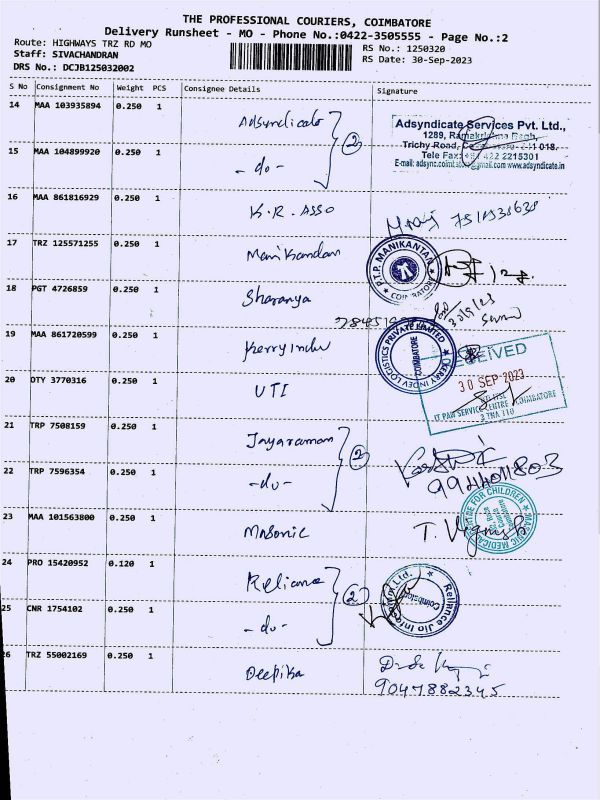 THE PROFESSIONAL COURIERS, COIMBATORE
Delivery Runsheet - MO - Phone No.:0422-3505555 - Page No.:2
Route: HIGHWAYS TRZ RD MO
RS No.: 1250320
Staff: SIVACHANDRAN
RS Date: 30-Sep-2023
DRS No.: DCJB125032002
S No Consignment No Weight PCS Consignee Details Signature
14 MAA 103935894 0.250 1 Adsyndicate
2
Adsyndicate Services Pvt. Ltd.,
1289, Ramakrishna Bagh,
Trichy Road,
Tele Fax: 2215301
www.adsyndicate.in
15 MAA 104899920 0.250 1 - do -
16 MAA 861816929 0.250 1 K.R. ASSO
17 TRZ 125571255 0.250 1 Manikandan
P.T.P. MANIKANTAN
18 PGT 4726859 0.250 1 Sharanya
30/9/23
19 MAA 861720599 0.250 1 Kerry Indev
KERRY INDEV LOGISTICS PRIVATE LIMITED
COIMBATORE
20 OTY 3770316 0.250 1 UTI
RECEIVED
30 SEP 2023
IT PAN SERVICE CENTRE COIMBATORE
21 TRP 7508159 0.250 1 Jayaraman
2
22 TRP 7596354 0.250 1 - do -
9944011803
23 MAA 101563800 0.250 1 Masonic
T. Vignesh
MASONIC MEDICAL CENTRE FOR CHILDREN
24 PRO 15420952 0.120 1 Reliance
2
Reliance Jio Infocomm Ltd.
Coimbatore
25 CNR 1754102 0.250 1 - do -
26 TRZ 55002169 0.250 1 Deepika
9047882345